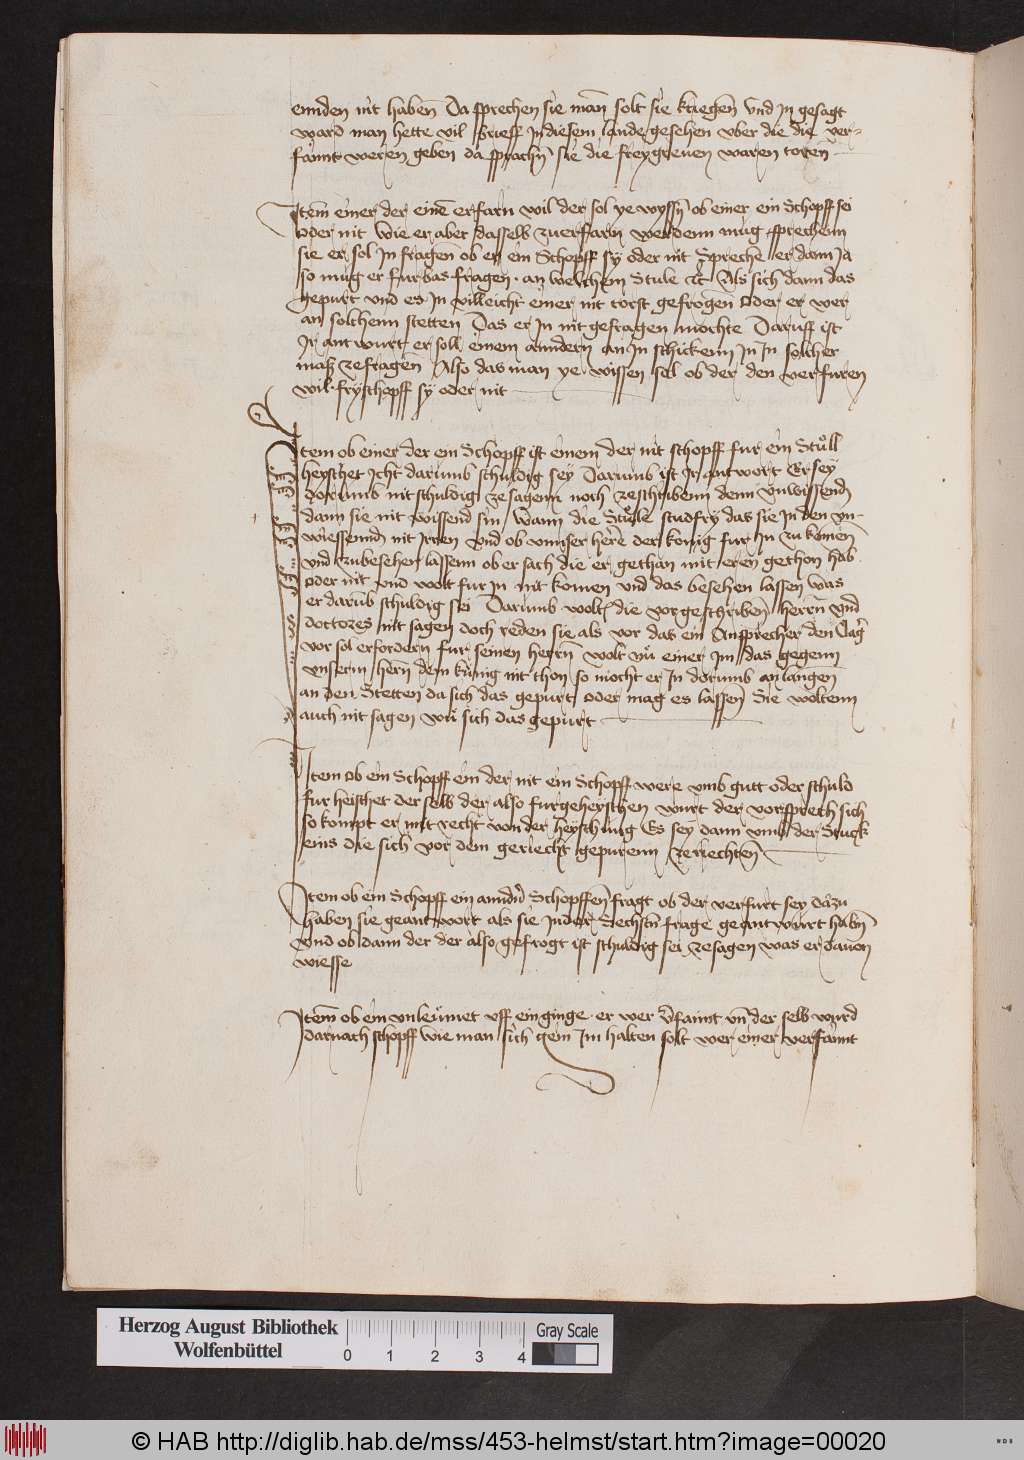 ennden nit haben Da sprechen sie man solt sie kriegen Und In gesagt
ward man hette vil brieff In diesem lande gesehen vber die die ver-
faint weren geben da sprachn sie die freygreuen waren toren
Item einer der eine erfarn wil der sol ye wyssn ob einer ein Schopff sei
oder nit wie er aber dasselb zuerfarn werdenn mug sprechenn
sie er sol In fragen ob er ein Schopff sy oder nit Spreche er dann Ja
so mug er furbas fragen an welchem Stule Als sich dann das
gepurt und es In villeicht einer nit torst gefrogen Oder er wer
an solchenn stetten Das er In nit gefragen mochte Daruff ist
Ir antwurt er soll einem anndern an In schickenn In In solcher
maß zefragen Also das man ye wissen sol ob der den verfuren
wil fryschopff sy oder nit
Item ob einer der ein Schopff ist einem der nit schopff fur ein Stull
heyschet Icht darumb schuldig sey Darumb ist Ir antwort Er sey
dorumb nit schuldig ze sagenn noch zeschribenn denn Unwissend
dann sie nit wissend sin wann die Stule studfry das sie In den un-
wiessennd nit Irren Und ob unnser here der konig fur In zu komen
und zubesehen lassenn ob er sach die er gethan mit eren gethon hab
oder nit und wolt fur In nit komen und das besehen lassen was
er darub schuldig sei Darumb wolt die vorgeschriben herrn und
doctores nit sagen doch reden sie als vor das ein Ansprecher den Clag
vor sol erfordern fur seinen herrn wolt nu einer Im das gegenn
unserm hern dem kunig nit thon so mocht er In dorumb anlangen
an den Stetten da sich das gepurt oder mag es lassen Sie woltenn
auch nit sagen wa sich das gepurt
Item Ob ein Schopff ein der nit ein Schopff were umb gutt oder schuld
fur heischet der selb der also furgeheyschen wurt der versprech sich
so kompt er mit recht von der heyschung Es sey dann umb der Stuck
eins die sich vor dem geriecht gepurenn zerlechten
Item ob ein Schopff ein anndn Schopffen fragt ob der verfurt sey dazu
haben sie geantwort als sie In der Sechstn frage geantwurt habn
Und ob dann der der also gefrogt ist schuldig sei zesagen was er dauon
wiesse
Item ob ein unleumet uff ein ginge er wer Vfaint un der selb wurd
darnach schopff wie man sich gein Im halten solt wer einer verfaint
Herzog August Bibliothek
Wolfenbüttel
0 1 2 3 4
Gray Scale
© HAB http://diglib.hab.de/mss/453-helmst/start.htm?image=00020